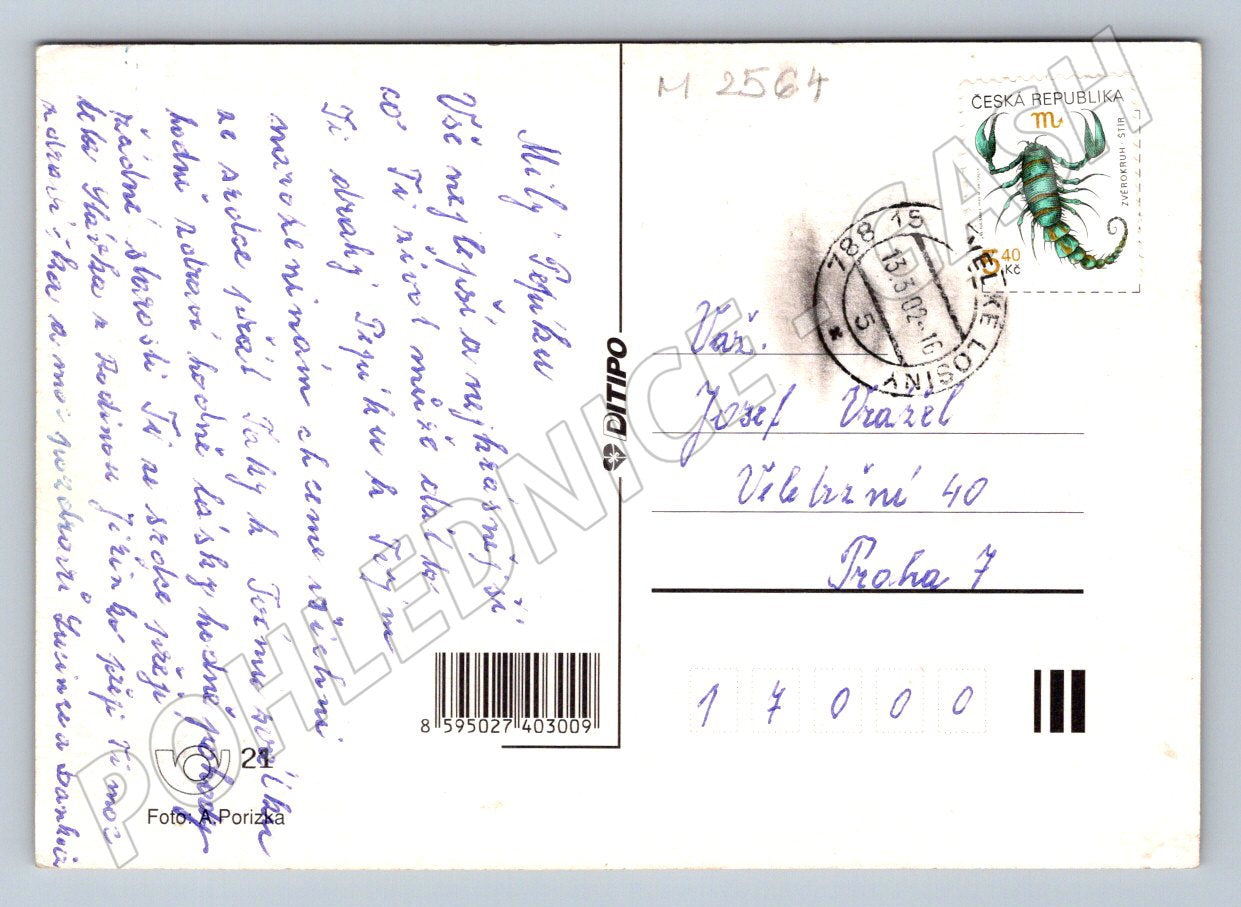 M 2564
ČESKÁ REPUBLIKA
ZVĚROKRUH - ŠTÍR
5,40 Kč
788 15 VELKÉ LOSINY
13.3.02-16
5
Milý Pepíku
Vše nejlepší a nejkrásnější
co Ti život může dát k
Ti drahý Pepíku k Tvým
narozeninám chceme všichni
ze srdce přát Taky k Tvému svátku
hodně zdraví hodně lásky hodně pohody
žádné starosti Ti ze srdce přejí
teta Slávka z Rodinou Jiřinka přeji Ti moc
zdravíčka a moc pozdravů Lucince a Dankovi
DITIPO
Váž.
Josef Vrazel
Veletržní 40
Praha 7
17000
8 595027 403009
21
Foto: A. Porizka
POHLEDNICE - GASH